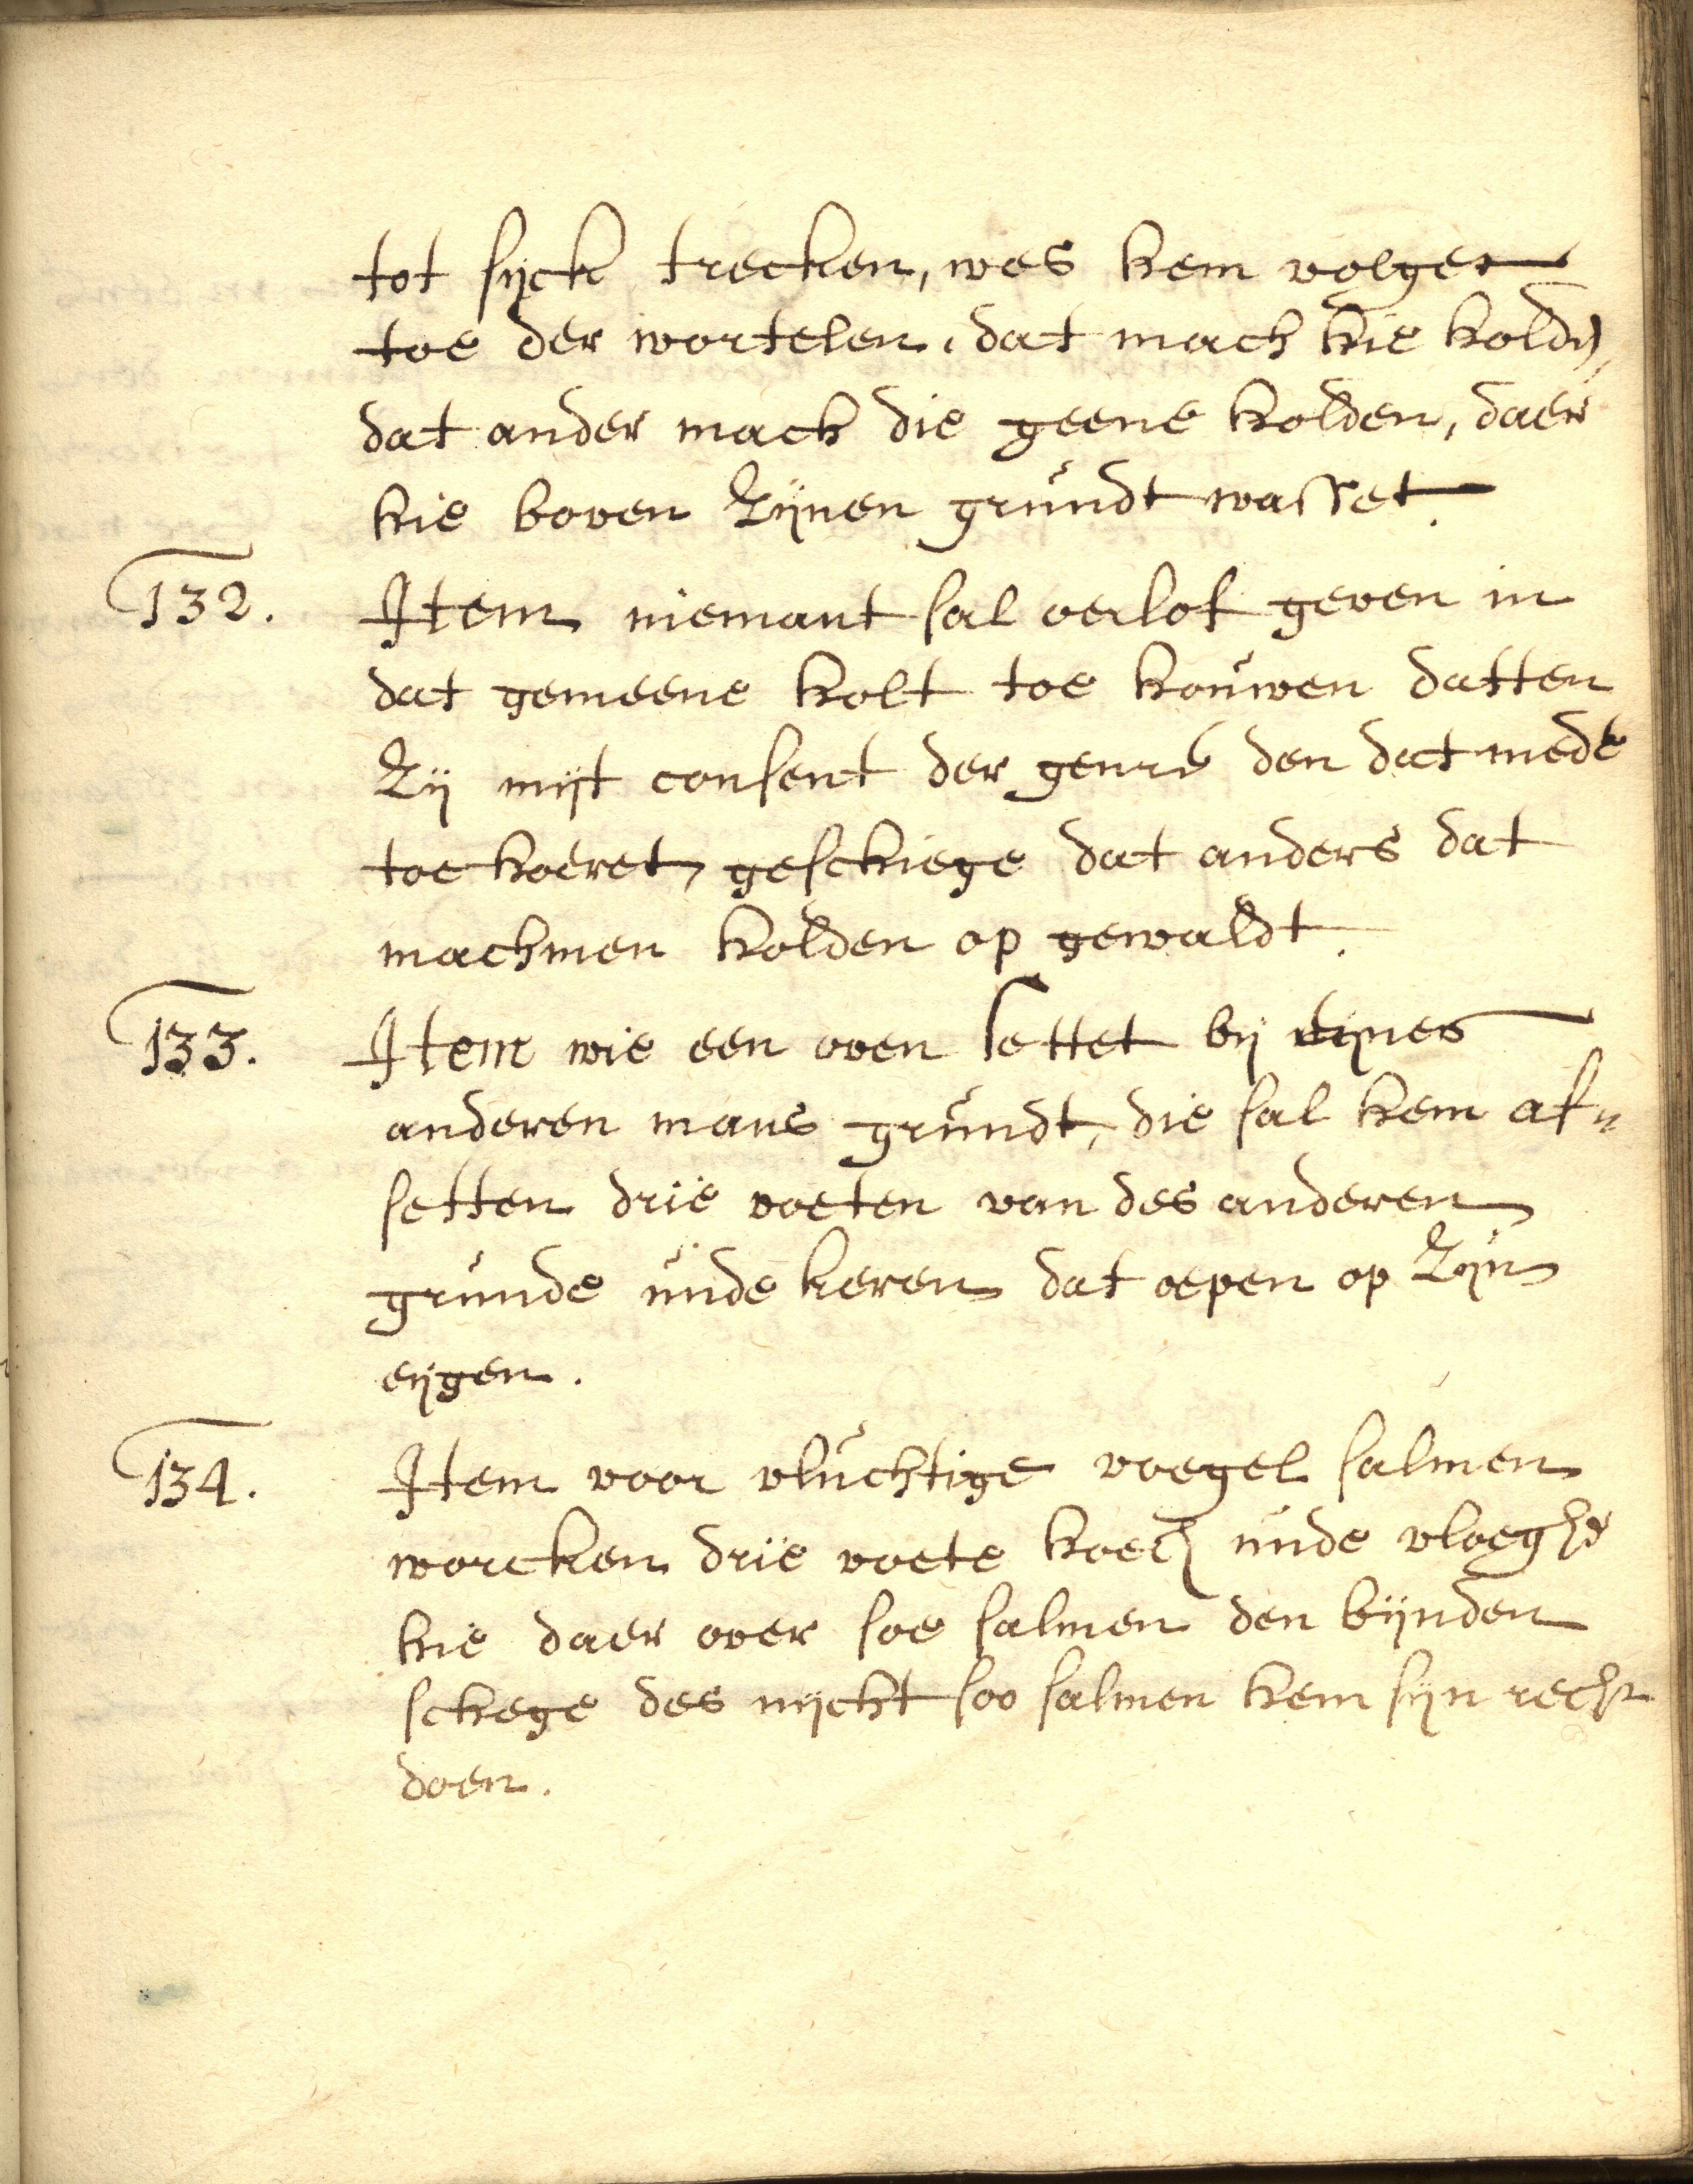 tot sijck trecken, wes hem volget
toe der wortelen, dat mach hie holdn,
dat ander mach die geene holden, daer
hie boven zijnen grundt wasset.
132. Item niemant sal oerlof geven in
dat gemeene holt toe houwen datten
zij mijt consent der genre den dat mede
toe hoeret, geschiege dat anders dat
machmen holden op gewaldt.
133. Item wie een oven settet bij eijnes
anderen mans grundt, die sal hem af=
setten drie voeten van des anderen
grunde unde keren dat oepen op zijn
eijgen.
134. Item voor vluchtige voegel salmen
worcken drie voete hoech unde vloeghe
hie daer over soe salmen den bijnden
schege des nijcht soo salmen hem sijn recht
doen.